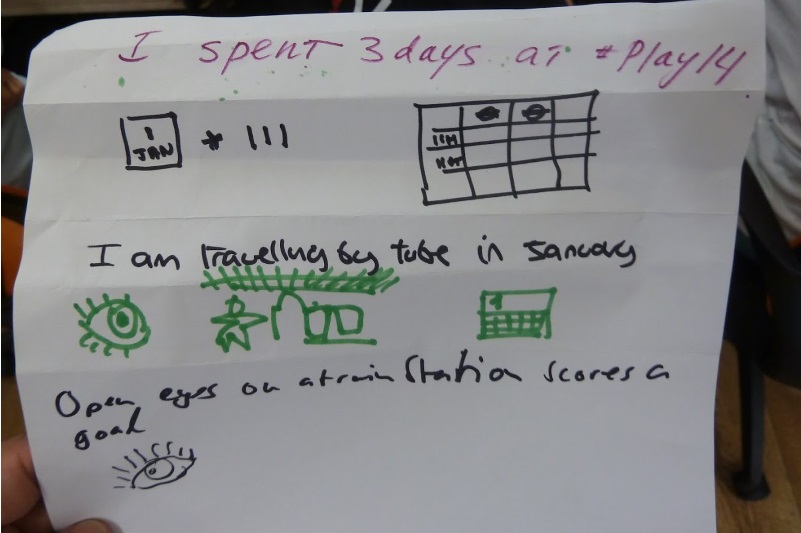 I spent 3 days at #Play14
1
JAN
* III
I am travelling by tube in January
1
Open eyes on a train station scores a
goal